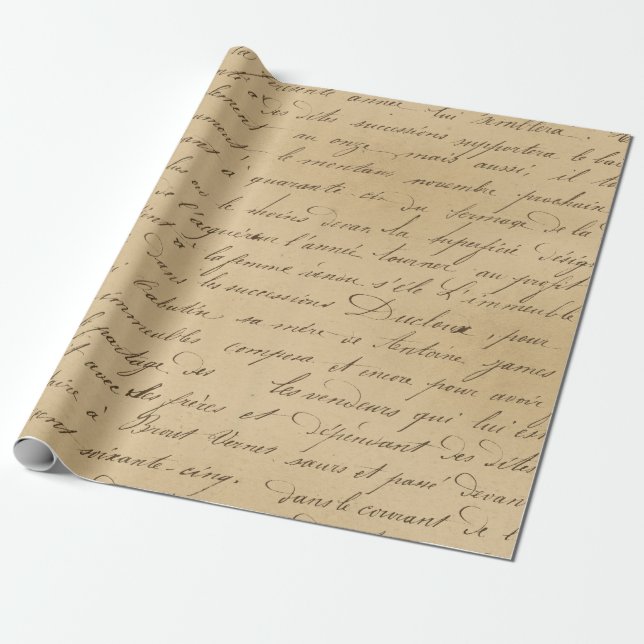 présente année lui semblera
à des dites successions supportera le
au onze, mais aussi, il
le montant novembre prochain
à quarante cin du fermage de la
plus ou le moins devan la superficie désig
de l'acquéreur l'année tourner au profit
à la femme venou s'élè l'immeuble
dans les successions Ducloux, pour
Cabutin, sa mère de Antoine James
immeubles composa et encore pour avoir
partage des les vendeurs qui lui
avec ses frères et dépendant des dites
à Brout-Vernet saurs et passé devan
soixante-cinq. dans le courant de